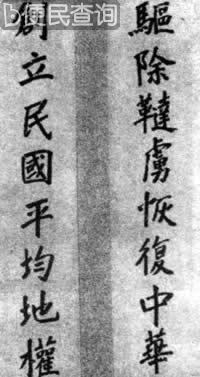 便民查询
驅除韃虜恢復中華
創立民國平均地權